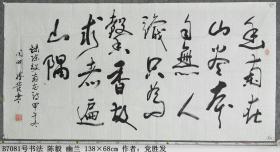 幽蘭在
山谷本
自無人
識只為
馨香重
求者遍
山隅
B7081号书法 陈毅 幽兰 138×68cm 作者：党胜发